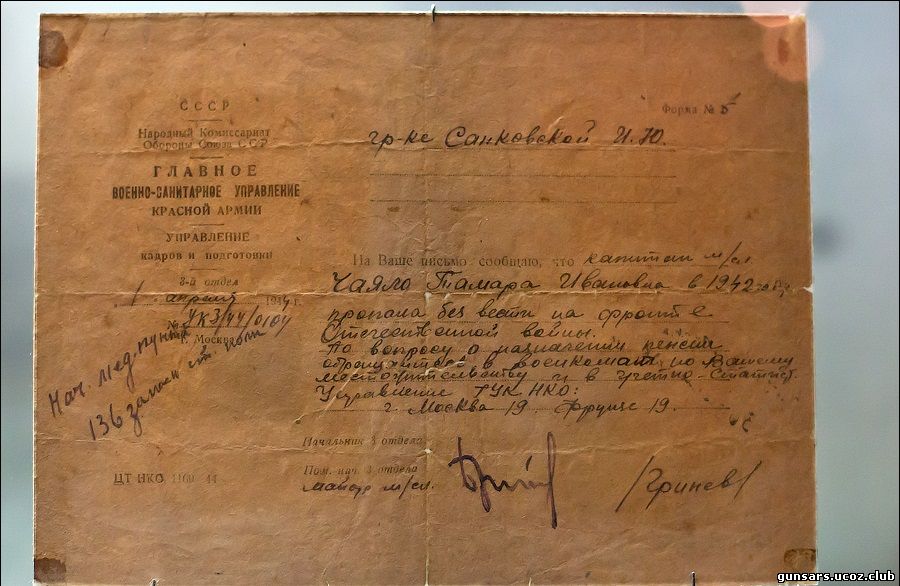 СССР
Народный Комиссариат
Обороны Союза ССР
ГЛАВНОЕ
ВОЕННО-САНИТАРНОЕ УПРАВЛЕНИЕ
КРАСНОЙ АРМИИ
УПРАВЛЕНИЕ
кадров и подготовки
3-й отдел
1 апреля 1944 г.
№ УК3/44/0104
г. Москва
Нач. медпункта
136 запасн. ст.
Форма № 5
гр-ке Санковской И.Ю.
На Ваше письмо сообщаю, что капитан м/сл.
Чаяло Тамара Ивановна в 1942 году
пропала без вести на фронте
Отечественной войны.
По вопросу о назначении пенсии
обращайтесь в военкомат по Вашему
местожительству и в учетно-статист.
Управление ГУК НКО:
г. Москва 19 Фрунзе 19.
Начальник 3 отдела
Пом. нач. 3 отдела
майор м/сл.
/Гринев/
ЦТ НКО 1160 44
gunsars.ucoz.club